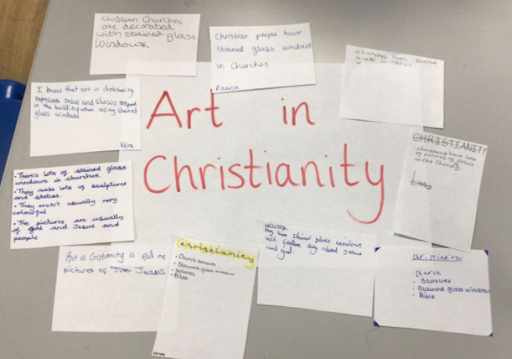 Christian Churches
are decorated
with stained glass
Windows.
Christian people have
stained glass windows
in Churches
Churches have stained
glass windows
I know that art in christianity
Jesus and shows respect
in the building when using stained
glass windows
Art in
Christianity
CHRISTIANITY
christians have lots
of pictures of Jesus
in the Church
• There's lots of stained glass
windows in churches.
• They make lots of sculptures
and statues.
• They aren't usually very
colourful
• The pictures are usually
of god and Jesus and
people
Art in Cristianity is full of
pictures of Jesus
Christianity
• Church
• Stained glass window
• Statues
• Bible
They have stained glass windows
about Jesus
and god
Christianity
• Church
• Statues
• Stained glass window
• Bible